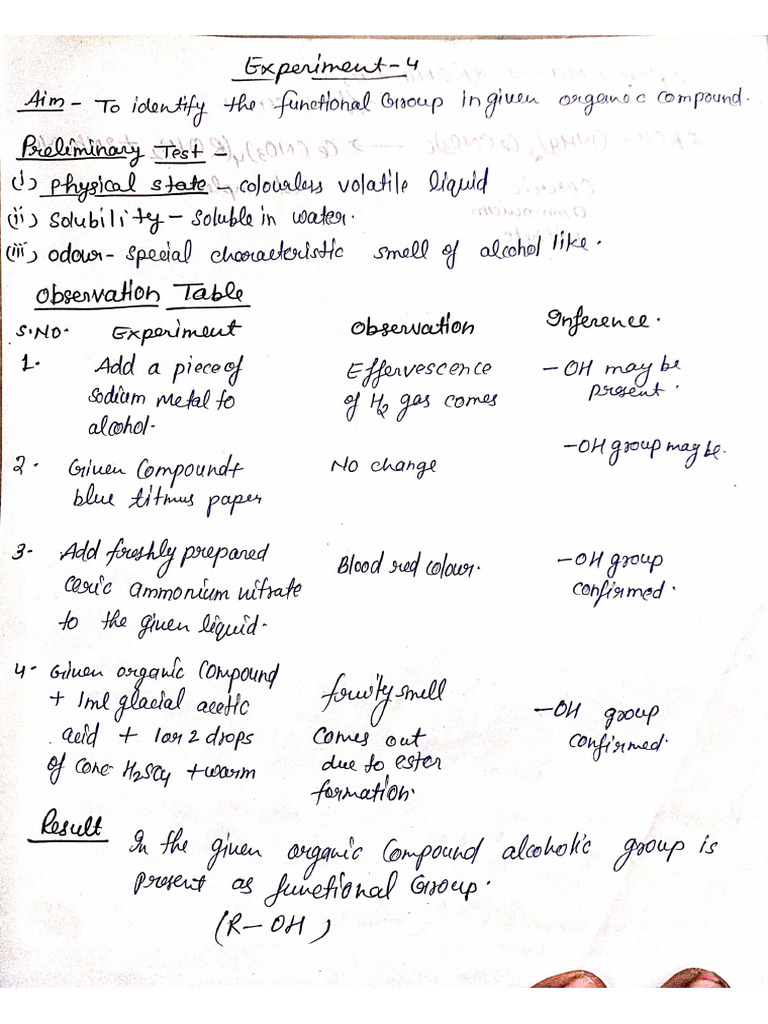 Experiment-4
Aim - To identify the functional Group in given organic compound.
Preliminary Test -
(i) physical state - colourless volatile liquid
(ii) solubility - soluble in water.
(iii) odour - special characteristic smell of alcohol like.
Observation Table
S.NO. Experiment Observation Inference.
1. Add a piece of Effervescence -OH may be
sodium metal to of H2 gas comes present.
alcohol.
2. Given Compound+ No change -OH group may be.
blue titmus paper
3- Add freshly prepared Blood red colour. -OH group
ceric ammonium nitrate confirmed.
to the given liquid.
4- Given organic Compound fruity smell
+ 1ml glacial acetic -OH group
acid + 1 or 2 drops comes out confirmed.
of conc H2SO4 + warm due to ester
formation.
Result In the given organic Compound alcoholic group is
present as functional Group.
(R-OH)